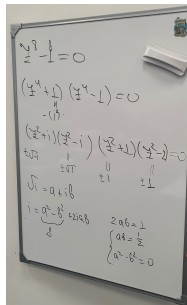 z⁸-1=0
(z⁴+1)(z⁴-1)=0
-(i)²
(z²+i)(z²-i)(z²+1)(z²-1)=0
±√-i ±√i ±i ±1
√i = a+ib
i = a²-b²+2iab
2ab=1
ab=½
a²-b²=0